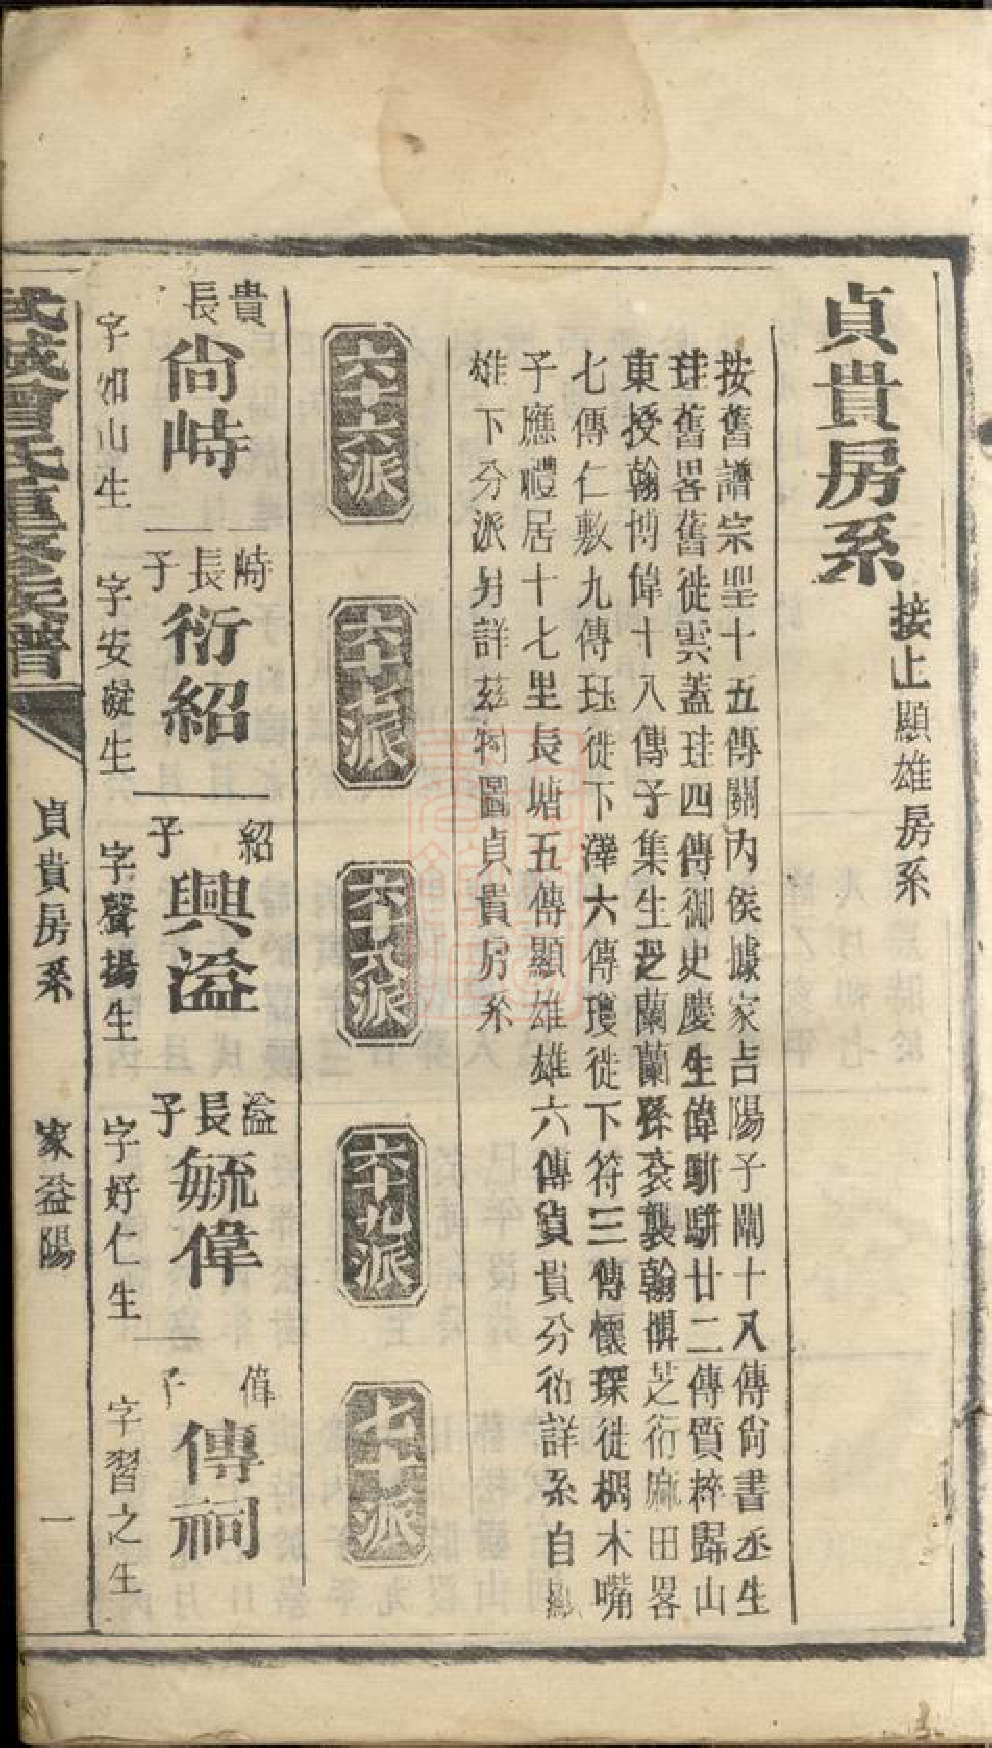 貞貴房系
接止顯雄房系
按舊譜宗聖十五傳關內侯據家吉陽子闡十八傳尙書丞生
珪舊畧舊徙雲蓋珪四傳御史慶生偉駢駢廿二傳質粹歸山
東授翰博偉十八傳子集生芝蘭蘭孫袞襲翰棋芝衍麻田畧
七傳仁敷九傳珏徙下澤六傳瓊徙下符三傳懷琛徙櫚木嘴
子應禮居十七里長塘五傳顯雄雄六傳貞貴分衍詳系自顯
雄下分派另詳茲獨圖貞貴房系
六十六派
六十七派
六十八派
六十九派
七十派
貴長
尙峙
峙長子
衍紹
紹子
興溢
溢長子
毓偉
偉子
傳祠
字如山生
字安凝生
字聲揚生
字好仁生
字習之生
武城曾氏重修族譜
貞貴房系
家益陽
一